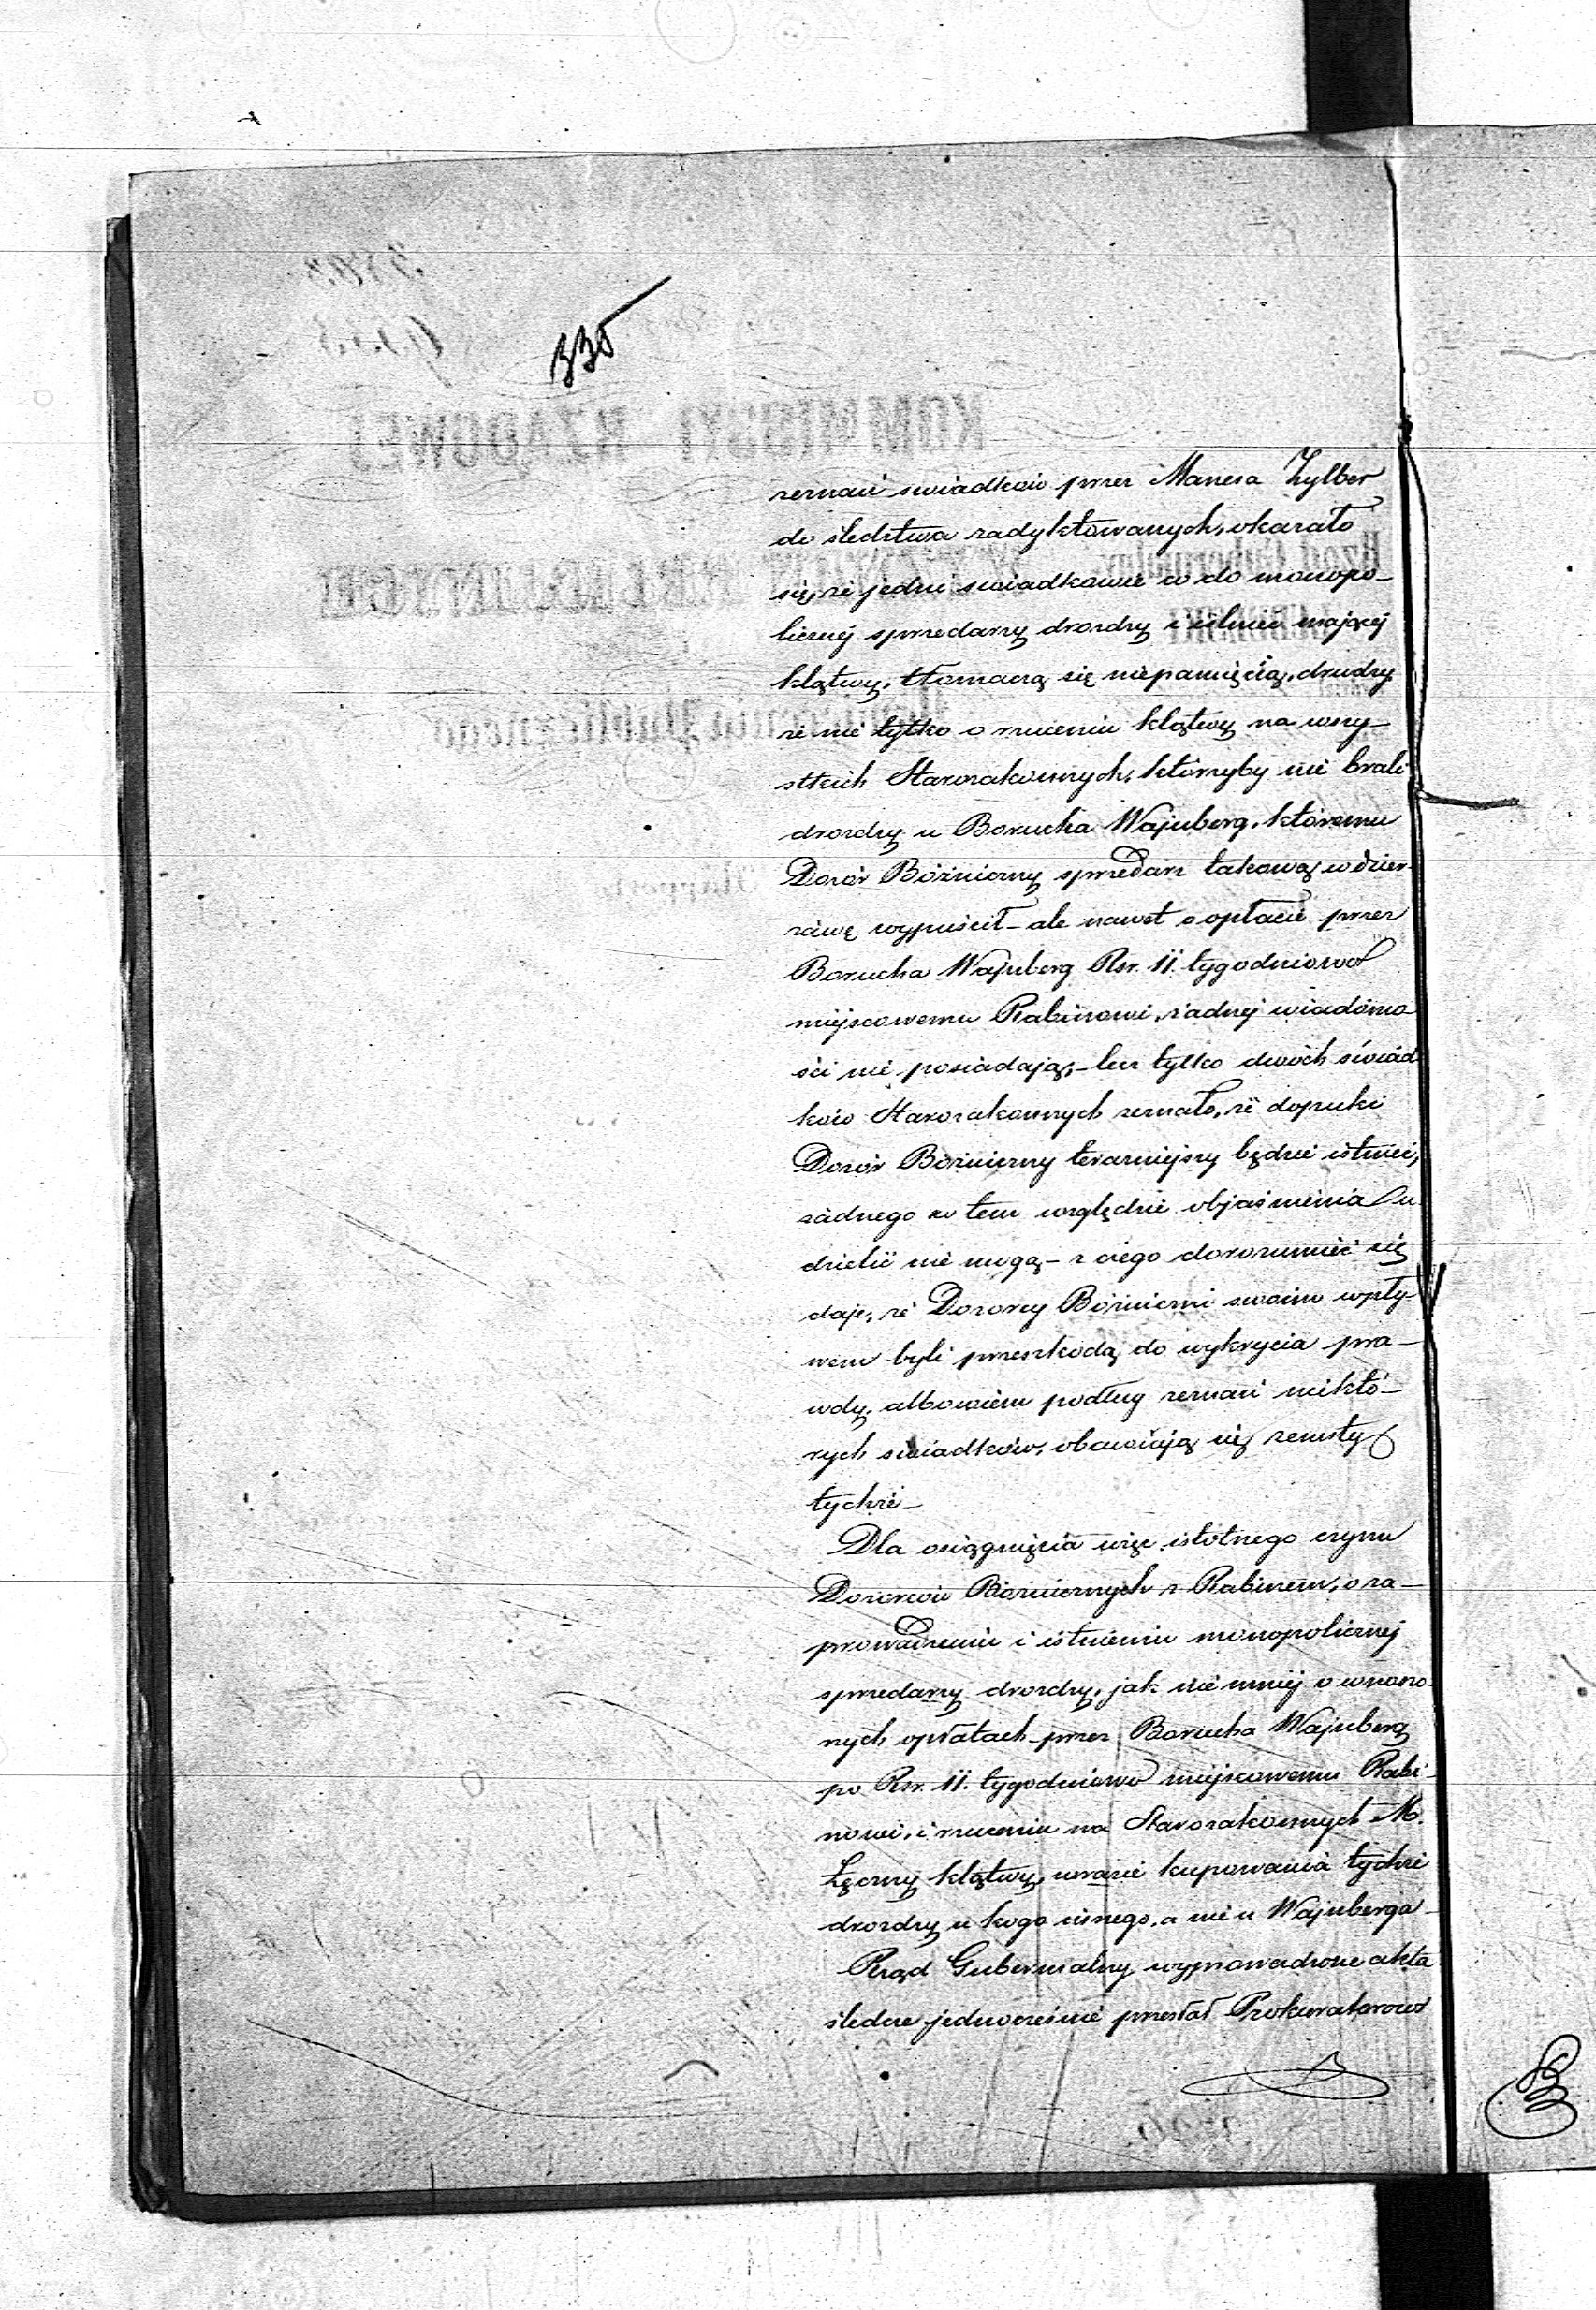 335
zeznań swiadków przez Manesa Zylber
do śledztwa zadyktowanych, okazało
się, że jedni swiadkowie co do monopo-
licznéj sprzedaży drożdży i istnieć mającej
klątwy, tłomaczą się niepamięcią, drudzy
że nie tylko o rzuceniu klątwy na wszy-
stkich Starozakonnych, którzyby nie brali
drożdży u Borucha Wajnberg, któremu
Dozór Bóżniczny sprzedarz takową w dzier-
żawę wypuścił - ale nawet o opłacie przez
Borucha Wajnberg Rsr. 11. tygodniowo
miejscowemu Rabinowi, żadnej wiadomo
ści nie posiadają, - lecz tylko dwóch świad
ków Starozakonnych zeznało, że dopuki
Dozór Bóżniczny terazniejszy będzie istnieć,
żadnego w tem względzie objaśnienia u-
dzielić nie mogą - z czego dorozumieć się
daje, że Dozorcy Bóżniczni swoim wpły-
wem byli przeszkodą do wykrycia pra-
wdy, albowiem podług zeznań niektó-
rych swiadków, obawiają się zemsty
tychże -
Dla osiągnięcia więc istotnego czynu
Dozorców Bóżnicznych z Rabinem, o za-
prowadzeniu i istnieniu monopolicznej
sprzedaży drożdży, jak nie mniéj o wnoszo-
nych opłatach przez Borucha Wajnberg
po Rsr. 11. tygodniowo miejscowemu Rabi-
nowi, i rzuceniu na Starozakonnych M.
Łęczny klątwy, wrazie kupowania tychże
drożdży u kogo innego, a nie u Wajnberga -
Rząd Gubernialny wyprowadzone akta
śledcze jednocześnie przesłał Prokuratorowi